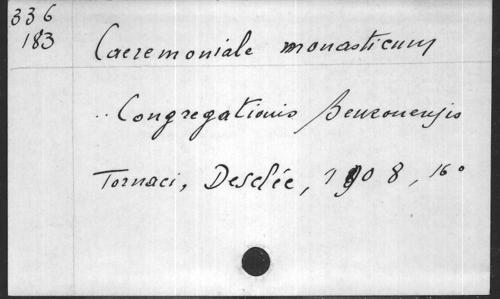 336
183
Caeremoniale monasticum
.. Congregationis Beuronensis
Tornaci, Desclée, 1908, 16°